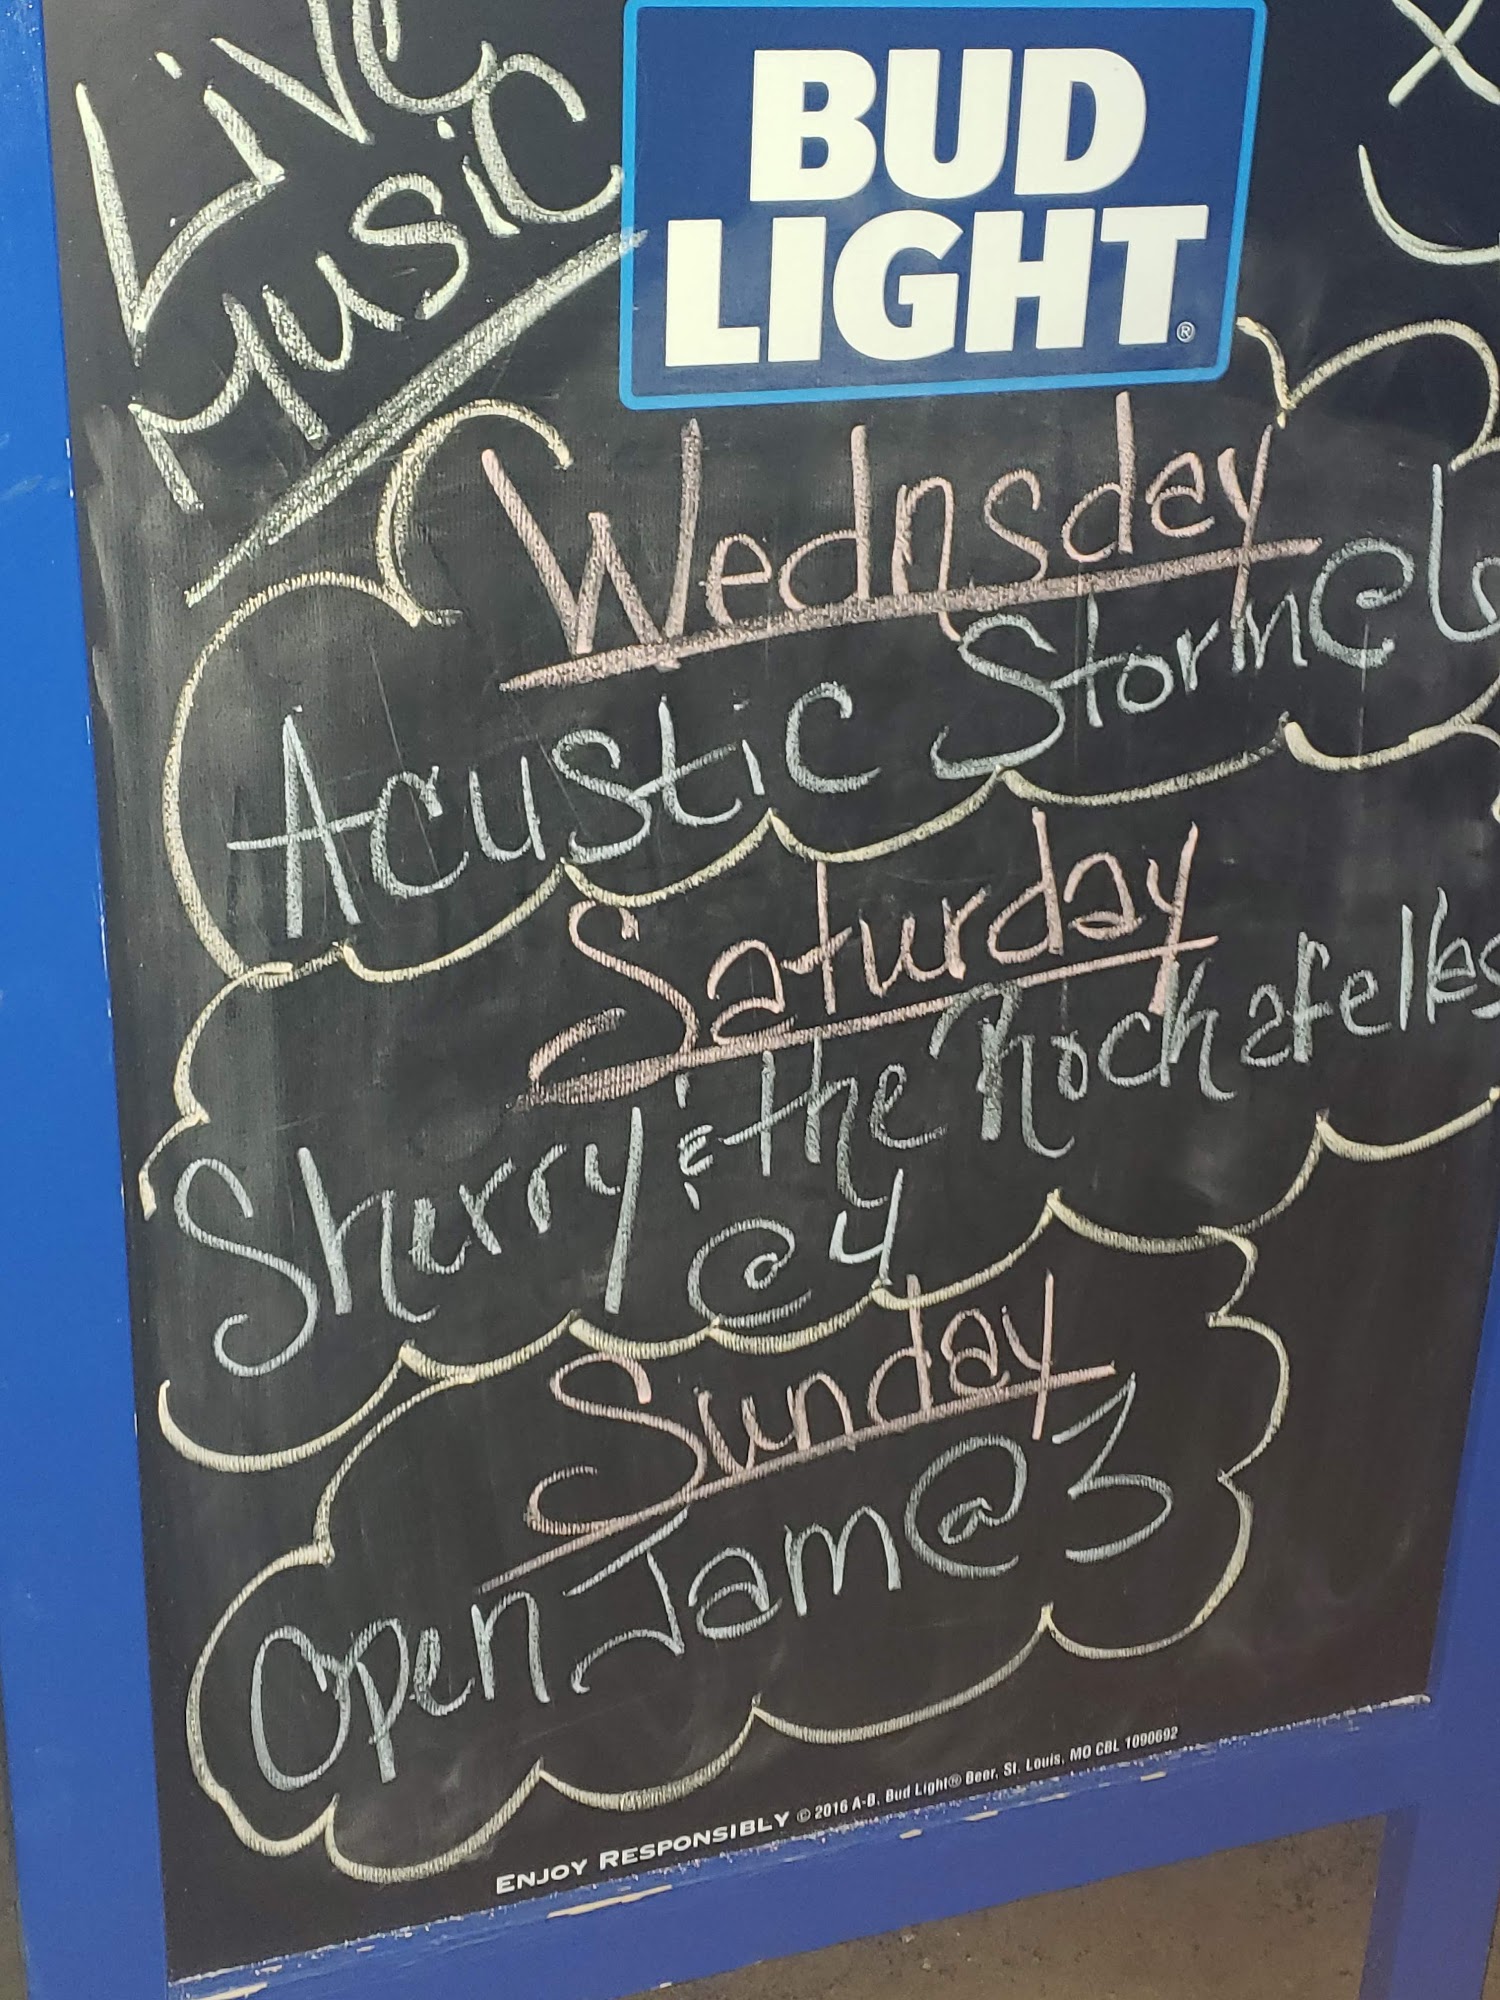 Live
Music
BUD
LIGHT
Wednsday
Acustic Storm @ 6
Saturday
Sherry & the Rockafellas
@ 4
Sunday
Open Jam @ 3
ENJOY RESPONSIBLY © 2016 A-B, Bud Light® Beer, St. Louis, MO CBL 1090692